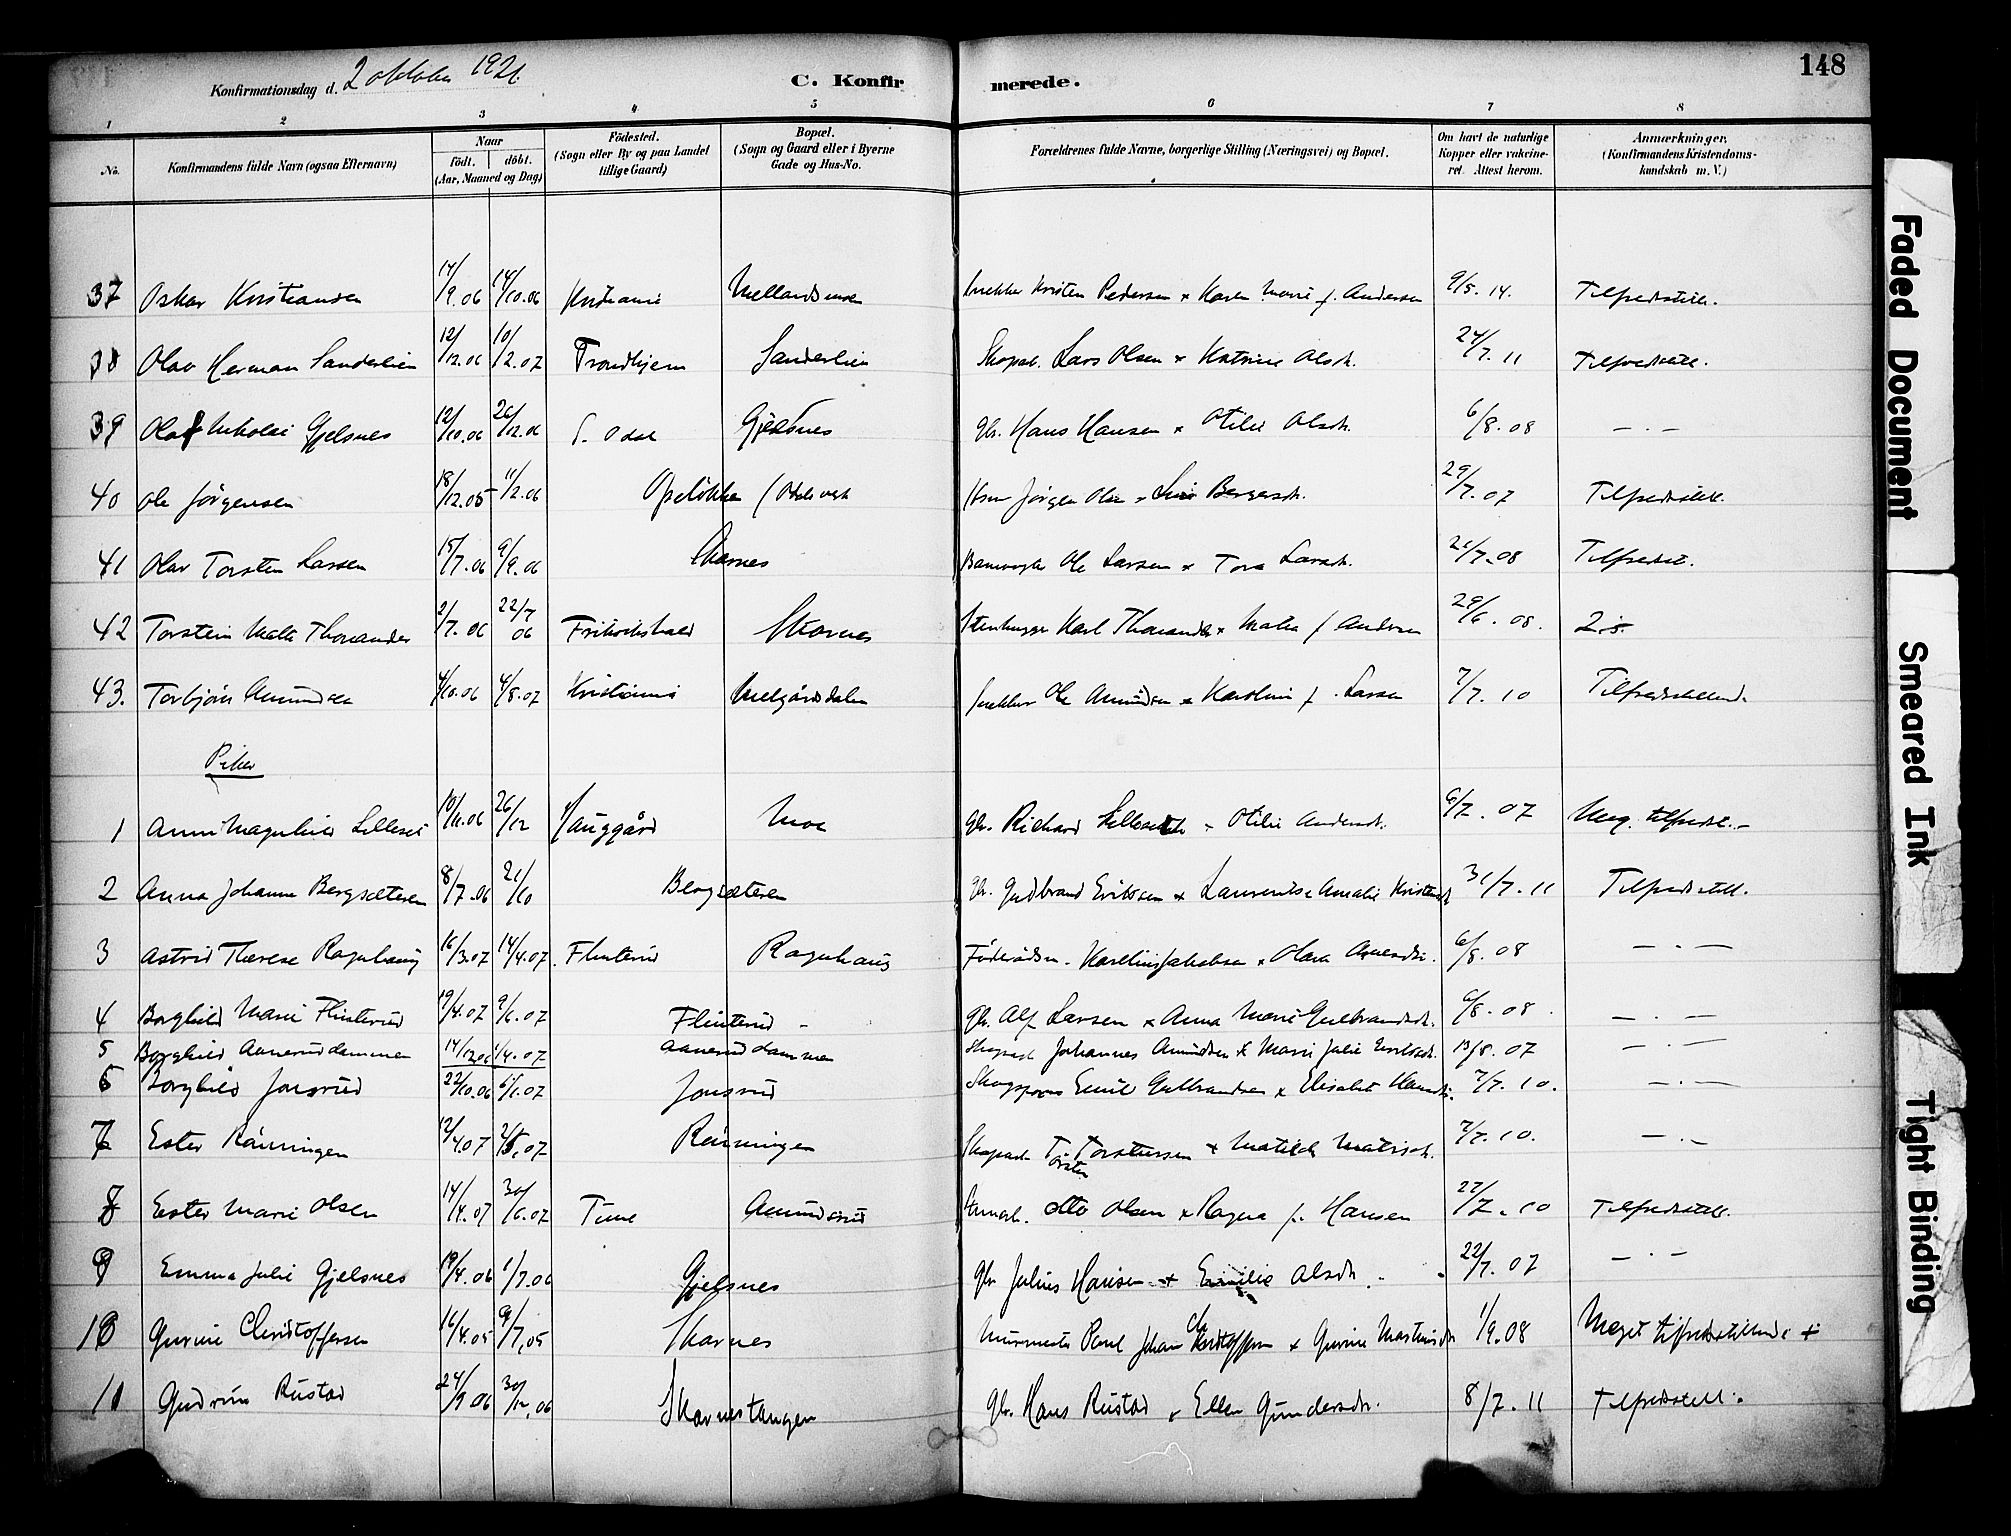 148
Konfirmationsdag d. 2 oktober 1921.
C. Konfirmerede.
1 2 3 4 5 6 7 8
No. Konfirmandens fulde Navn (ogsaa Efternavn) Naar født. døbt. (Aar, Maaned og Dag) Födested. (Sogn eller By og paa Landet tillige Gaard) Bopæl. (Sogn og Gaard eller i Byerne Gade og Hus-No. Forældrenes fulde Navne, borgerlige Stilling (Næringsvei) og Bopæl. Om havt de naturlige Kopper eller vakcineret. Attest herom. Anmærkninger. (Konfirmandens Kristendomskundskab m. V.)
37 Oskar Kristiansen 14/9.06 14/10.06 Kristiania Kristen Pedersen x Karen Marie f. Andersen 9/5.14. Tilfredsstill.
38 Olav Herman Sanderlien 12/12.06 10/2.07 Trondhjem Sanderlien Skopsl. Lars Olsen x Katrine Olsdr. 24/7.11 Tilfredsstill.
39 Olaf Nikolai Gjelsnes 12/10.06 26/12.06 S. Odal Gjelsnes Gbr. Hans Hansen x Otilie Olsdr. 6/8.08 — . —
40 Ole Jörgensen 18/12.05 11/2.06 Opsløkke Jörgen Olsen x Bergersdr. 29/7.07 Tilfredsstill.
41 Olav Torsten Larsen 15/7.06 9/9.06 Skarnes Ole Larsen x Tora Larsdr. 21/7.08 Tilfredsst.
42 Torstein Thorander 2/7.06 22/7 06 Skarnes Karl Thorander x f Andersen 29/6.08.
43. Torbjörn Amundsen 4/10.06 4/8.07 Kristiania Ole Amundsen x Karoline f. Larsen 7/7.10 Tilfredsstillend.
Piker
1 Anna Magnhild Lillesæt 10/11.06 26/12 Hauggård Moe Gbr. Richard x Otilie Andersdr. 6/7.07 Meg. tilfredst. -
2 Anna Johanne Bergsæteren 8/7.06 21/10 Bergsæteren Gbr. Gudbrand Eriksen x Laurentse Amalie Kristensdr 31/7.11 Tilfredsstill.
3 Astrid Therese Ragnhaug 16/3.07 14/4.07. Flinterud Ragnhaug x Olava 6/8.08 — . —
4 Borghild Marie Flinterud 19/4.07 9/6.07 Flinterud - Gbr. Alf Larsen x Anna Marie Gulbrandsdr. 6/8.08. — . —
5 Borghild Aaneruddammen 14/12.06 1/4.07 Aaneruddammen Johannes Amundsen x Marie Julie Eriksdr. 13/8.07 — . —
6 Borghild Jonsrud 22/10.06 6/1.07 Jonsrud Emil Gulbrandsen x Elisabet Hansdr. 7/7.10. — . —
7 Ester Rönningen 12/4.07 2/5.07 Rönningen Torsten Torstensen x Matilde 7/7.10. — . —
8 Ester Marie Olsen 14/4.07 30/6.07 Tune Amundsrud Otto Olsen x Ragna f. Hansen 22/7.10 Tilfredsstill.
9 Emma Julie Gjelsnes 19/4.06 1/7.06 Gjelsnes Gbr Julius Hansen x Emilie Olsdr. 22/7.07 — . —
10 Gurine Christoffersen 16/4.05 9/7.05 Skarnes Murmester Paul Johan Christoffersen x Gurine Martinsdr 1/9.08 Meget tilfredsstillende +
11 Gudrun Rustad 24/9 06 30/12.06 Skarnestangen Gbr. Hans Rustad x Ellen Gundersdr. 8/7.11 Tilfredsstill.
Faded Document
Smeared Ink
Tight Binding